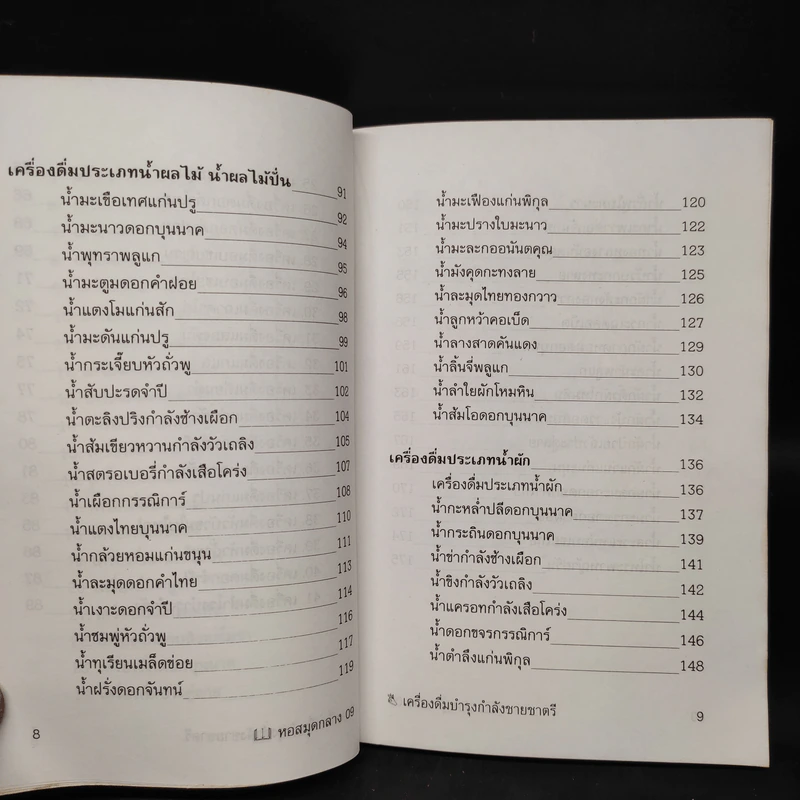 เครื่องดื่มประเภทน้ำผลไม้ น้ำผลไม้ปั่น 91
น้ำมะเขือเทศแก่นปรู 92
น้ำมะนาวดอกบุนนาค 94
น้ำพุทราพลูแก 95
น้ำมะตูมดอกคำฝอย 96
น้ำแตงโมแก่นสัก 98
น้ำมะดันแก่นปรู 99
น้ำกระเจี๊ยบหัวถั่วพู 101
น้ำสับปะรดจำปี 102
น้ำตะลิงปริงกำลังช้างเผือก 104
น้ำส้มเขียวหวานกำลังวัวเถลิง 105
น้ำสตรอเบอรี่กำลังเสือโคร่ง 107
น้ำเผือกกรรณิการ์ 108
น้ำแตงไทยบุนนาค 110
น้ำกล้วยหอมแก่นขนุน 111
น้ำละมุดดอกคำไทย 113
น้ำเงาะดอกจำปี 114
น้ำชมพู่หัวถั่วพู 116
น้ำทุเรียนเมล็ดข่อย 117
น้ำฝรั่งดอกจันทน์ 119
8 หอสมุดกลาง 09
น้ำมะเฟืองแก่นพิกุล 120
น้ำมะปรางใบมะนาว 122
น้ำมะละกออนันตคุณ 123
น้ำมังคุดกะทงลาย 125
น้ำละมุดไทยทองกวาว 126
น้ำลูกหว้าคอเบ็ด 127
น้ำลางสาดคันแดง 129
น้ำลิ้นจี่พลูแก 130
น้ำลำใยผักโหมหิน 132
น้ำส้มโอดอกบุนนาค 134
เครื่องดื่มประเภทน้ำผัก 136
เครื่องดื่มประเภทน้ำผัก 136
น้ำกะหล่ำปลีดอกบุนนาค 137
น้ำกระถินดอกบุนนาค 139
น้ำข่ากำลังช้างเผือก 141
น้ำขิงกำลังวัวเถลิง 142
น้ำแครอทกำลังเสือโคร่ง 144
น้ำดอกขจรกรรณิการ์ 146
น้ำตำลึงแก่นพิกุล 148
เครื่องดื่มบำรุงกำลังชายชาตรี 9